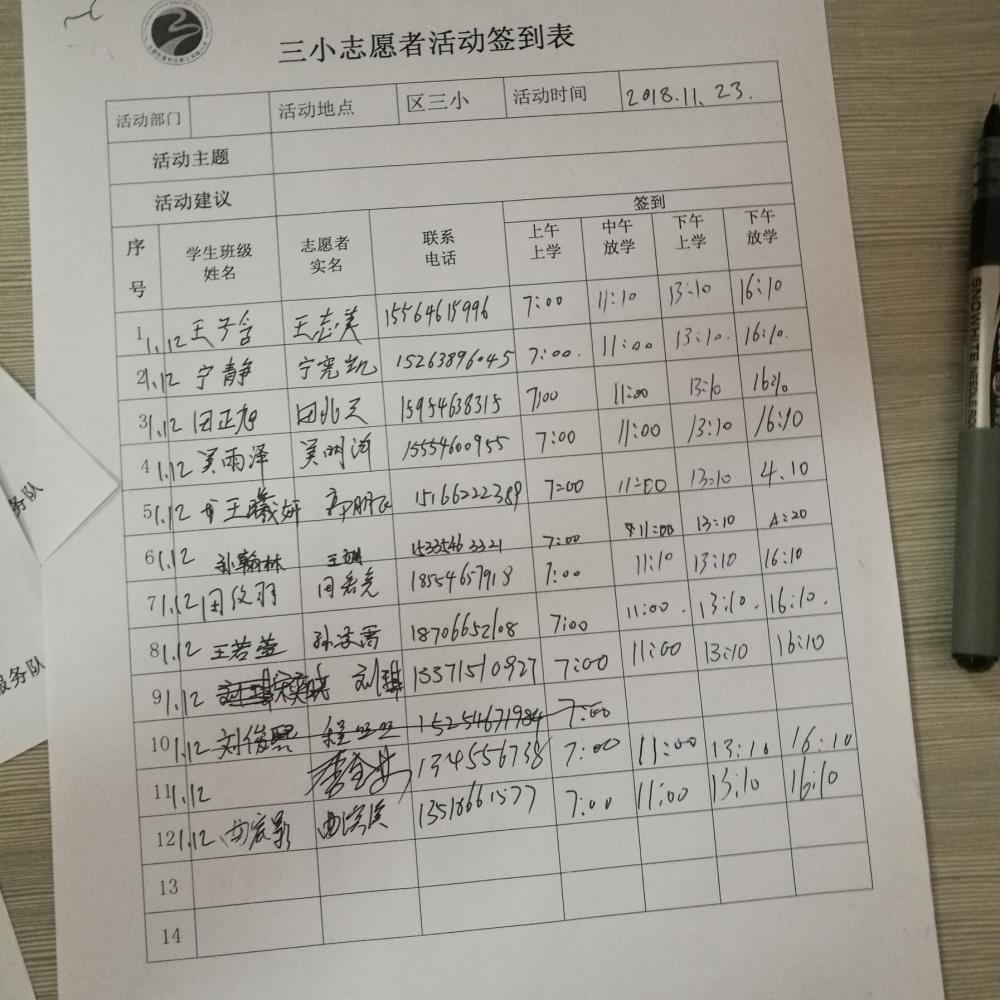 三小志愿者活动签到表
活动部门 活动地点 区三小 活动时间 2018.11.23.
活动主题
活动建议
序号 学生班级姓名 志愿者实名 联系电话 签到
上午上学 中午放学 下午上学 下午放学
1 1.12 王子含 王志美 15564615996 7:00 11:10 13:10 16:10
2 1.12 宁静 宁宪凯 15263896045 7:00. 11:00 13:10. 16:10.
3 1.12 田正旭 田兆天 15954638315 7:00 11:00 13:10 16:10
4 1.12 吴雨泽 吴明涛 15554600955 7:00 11:00 13:10 16:10
5 1.12 王曦妍 15166222389 7:00 11:00 13:10 4.10
6 1.12 孙翰林 王琳 1533546 3321 7:00 11:00 13:10 4:20
7 1.12 18554657918 7:00 11:10 13:10 16:10
8 1.12 王若萱 孙凌霄 18706652108 7:00 11:00. 13:10. 16:10.
9 1.12 刘琪 15371510927 7:00 11:00 13:10 16:10
10 1.12 刘俊熙 程旺旺 15254671984 7:00
11 1.12 1345556738 7:00 11:00 13:10 16:10
12 1.12 13518661577 7:00 11:00 13:10 16:10
13
14
务队
服务队
SNOWHITE
NEEDLE RO